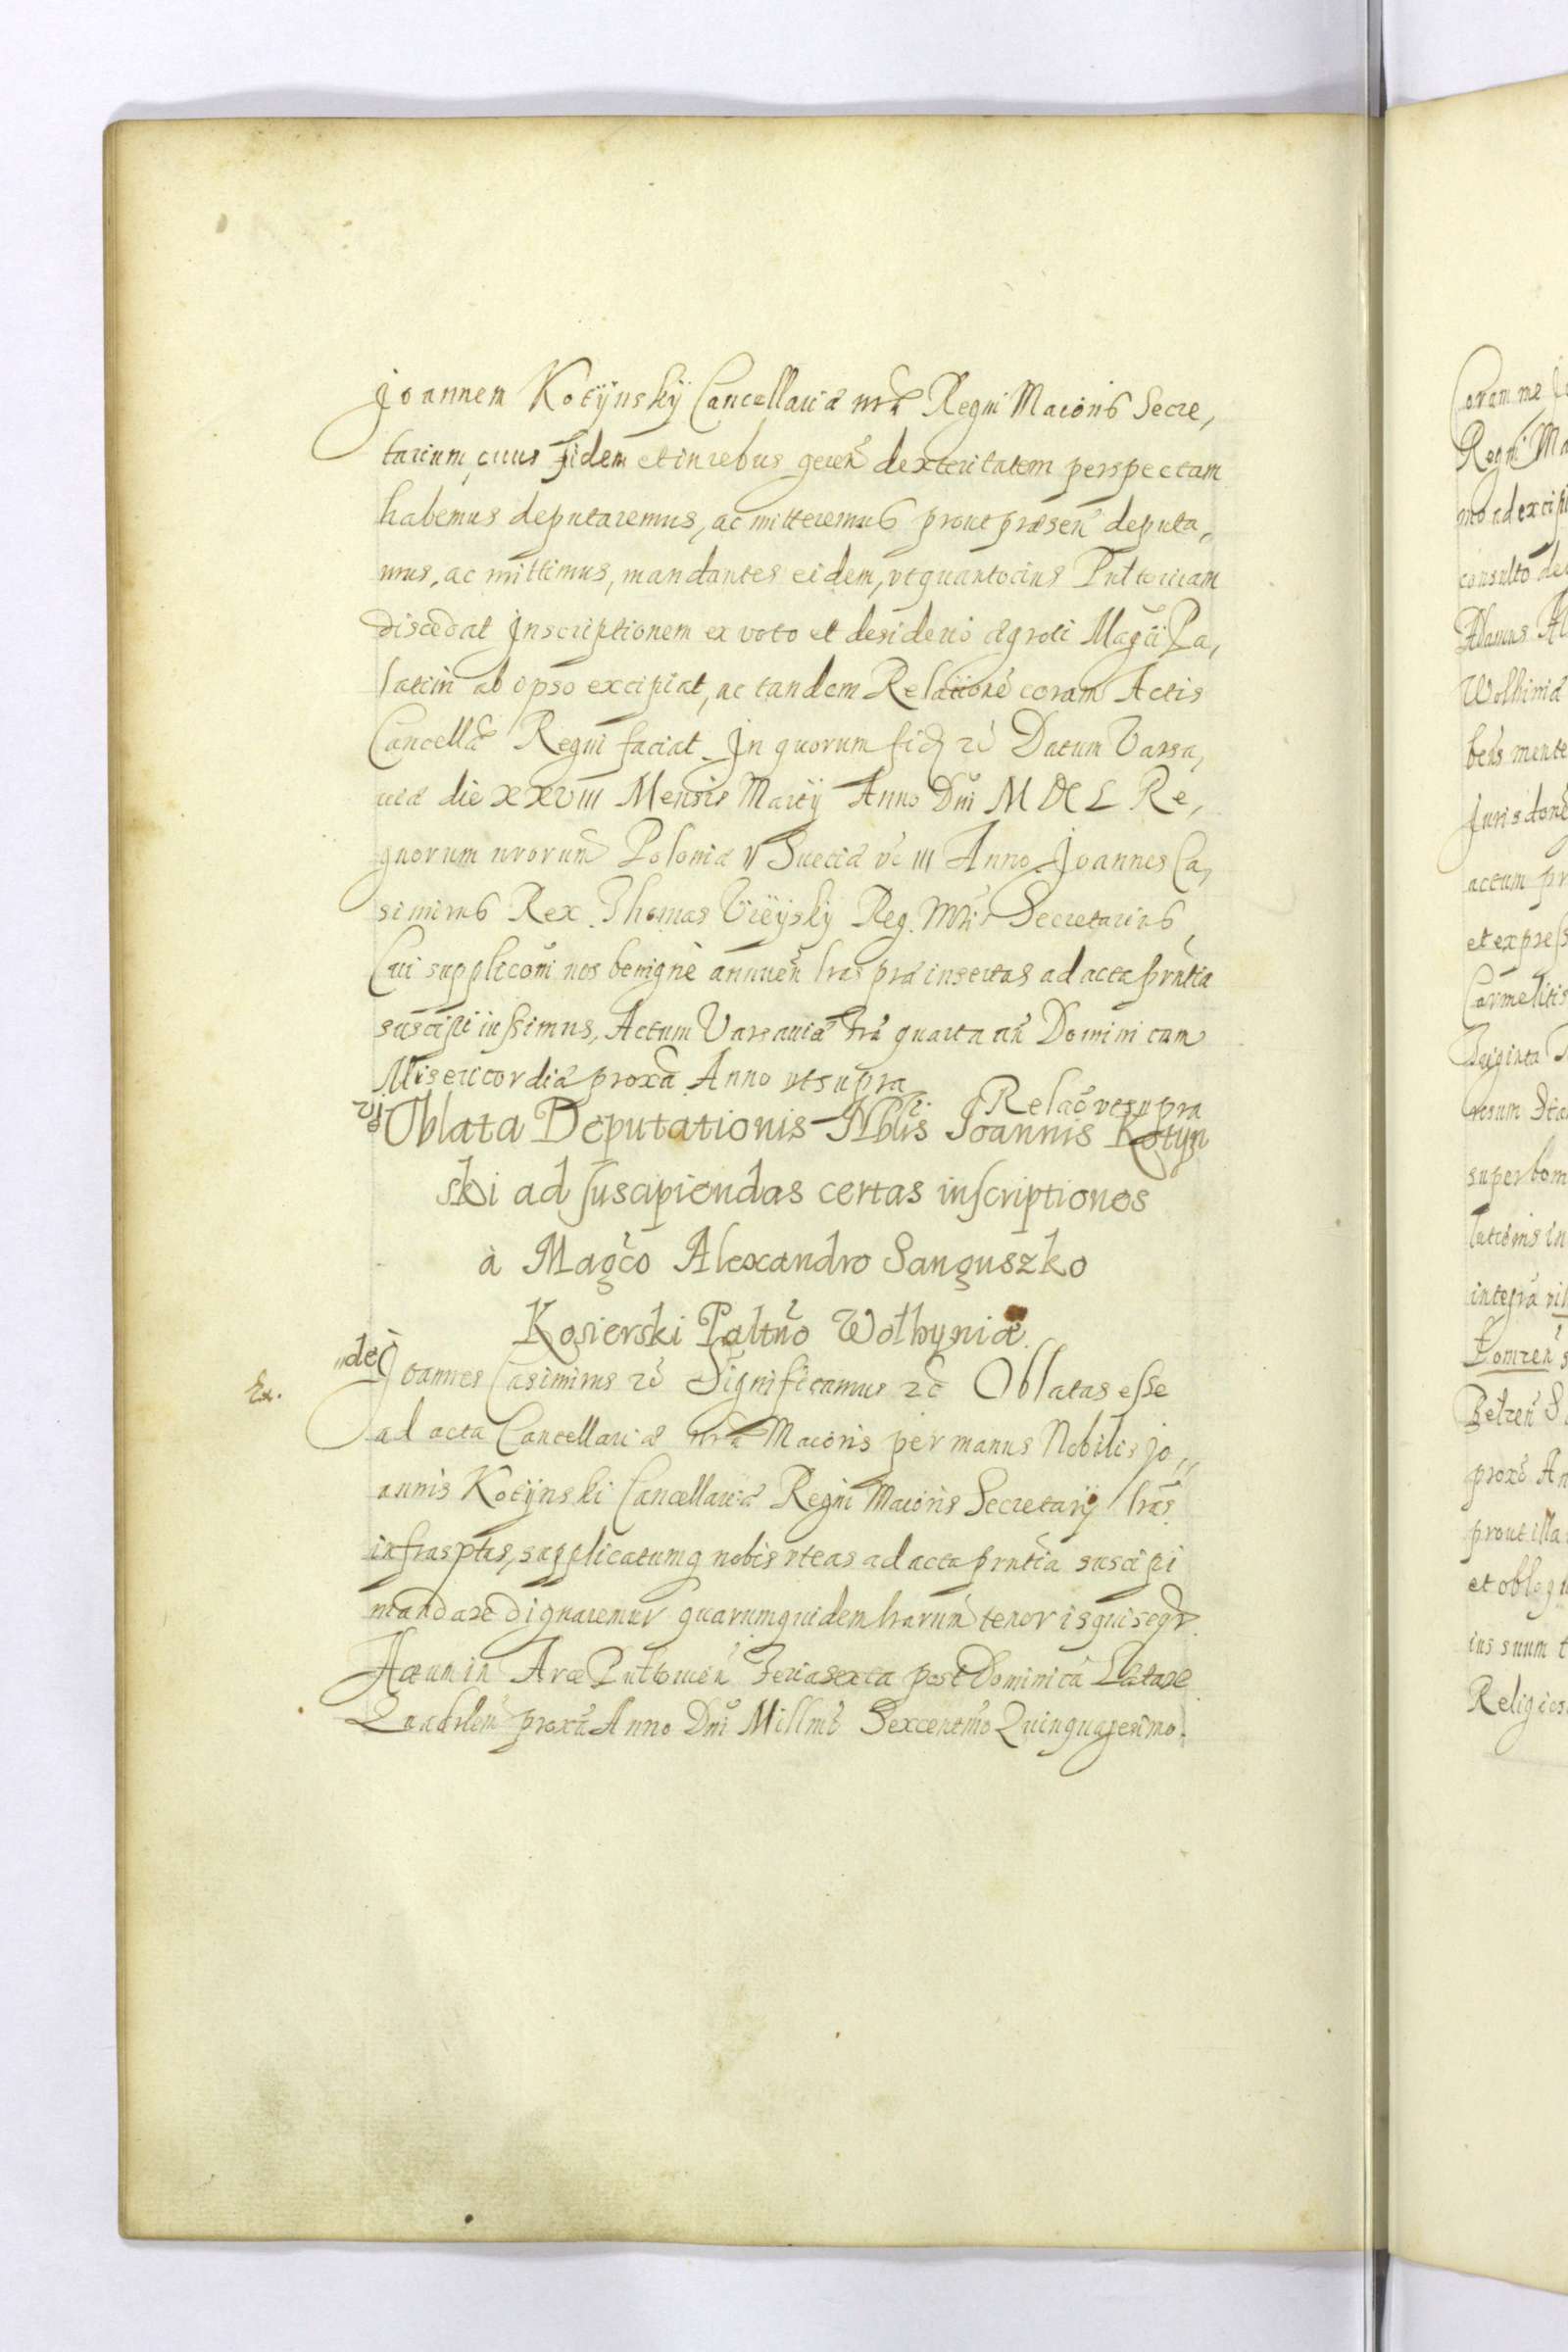 Joannem Kotÿnskÿ Cancellariæ nræ Regni Maioris Secre,
tarium, cuius fidem et in rebus geren dexteritatem perspectam
habemus deputaremus, ac mitteremus prout præsen deputa,
mus, ac mittimus, mandantes eidem, ut quantocius Pultoviam
discedat Inscriptionem ex voto et desiderio ægroti Magci Pa,
latini ab ipso excipiat, ac tandem Relationē coram Actis
Cancellæ Regni faciat. In quorum fidē rē Datum Varsa,
viæ die XXVIII Mensis Martij Anno Dni MDCL Re,
gnorum nrorum Poloniæ II Sueciæ vē III Anno. Joannes Ca,
simirus Rex. Thomas Vieÿskÿ Reg. Mtis Secretarius,
Cui supplicōni nos benignè annuen lras præinsertas ad acta prntia
suscipi iussimus, Actum Varsaviæ fria quarta an Dominicam
Misericordiæ proxa Anno ut supra
Relaō ut supra
Oblata Deputationis Nblis Joannis Kotyn
ski ad suscipiendas certas inscriptiones
à Magco Alexandro Sanguszko
Kosierski Paltno Wołhyniæ.
Ex.
Joannes Casimirus rē Significamus rē Oblatas esse
ad acta Cancellariæ nræ Maioris per manus Nobilis Jo,,
annis Kotÿnski Cancellariæ Regni Maioris Secretarij lras
infrasptas, supplicatumq nobis ut eas ad acta prntia suscipi
mandare dignaremur quarumquidem lrarum tenor is qui seqr.
Actum in Arce Pultovien Feria sexta post Dominicā Lætare
Quadrlem proxa Anno Dni Millmo Sexcentmo Quinquagesimo.
Coram me
Regni Ma
mo ad excipi
consulto de
Adamus
Wolhiniæ
bens mente
Juris done
actum pr
et expres
Carmelitis
super bon
latinis in
integra
proxe An
prout illa
et oblig
ius suum t
Religios